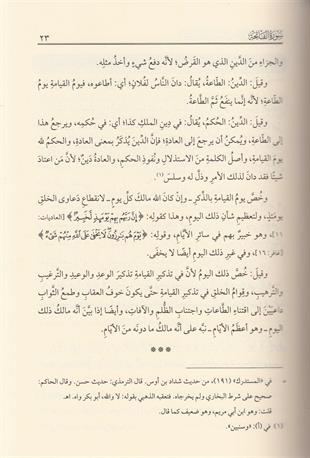 سورة الفاتحة ٢٣
والجزاءِ منَ الدَّينِ الذي هو القَرضُ؛ لأنَّه دفعُ شيءٍ وأخذُ مثلِه.
وقيلَ: الدِّينُ: الطَّاعةُ، يُقالُ: دانَ النَّاسُ لفُلانٍ؛ أي: أطاعوه، فيومُ القيامةِ يومُ
الطَّاعةِ؛ لأنَّه إنَّما ينفعُ ثَمَّ الطَّاعةُ.
وقيلَ: الدِّينُ: الحُكمُ، يُقالُ: في دِينِ الملكِ كذا؛ أي: في حُكمِه، ويرجعُ هذا
إلى الطَّاعةِ، ويُمكنُ أن يرجعَ إلى العادةِ؛ فإنَّ الدِّينَ يُذكَرُ بمعنى العادةِ، والحكمُ لله
يومَ القيامةِ، وأصلُ الكلمةِ منَ الاستذلالِ ونُفوذِ الحكمِ، والعادةُ دَينٌ؛ لأنَّ مَن اعتادَ
شيئًا فقد دانَ لذلك الأمرِ وذلَّ له وسلسَ.(١)
وخُصَّ يومُ القيامةِ بالذِّكرِ ـ وإنْ كانَ اللهُ مالكَ كلِّ يومٍ ـ لانقطاعِ دَعاوى الخلقِ
يومَئذٍ، ولتعظيمِ شأنِ ذلك اليومِ، وهذا كقولِه: ﴿إِنَّ رَبَّهُم بِهِمْ يَوْمَئِذٍ لَّخَبِيرٌ﴾ [العاديات:
١١]، وهو خبيرٌ بهم في سائرِ الأيَّامِ، وقولِه: ﴿يَوْمَ هُم بَارِزُونَ لَا يَخْفَى عَلَى اللَّهِ مِنْهُمْ شَيْءٌ﴾
[غافر: ١٦]، وفي غيرِ ذلك اليومِ أيضًا لا يخفَى.
وقيلَ: خُصَّ ذلك اليومُ لأنَّ في تذكيرِ القيامةِ تذكيرَ الوعدِ والوعيدِ والتَّرغيبِ
والتَّرهيبِ، وقِوامُ الخلقِ في تذكيرِ القيامةِ حتَّى يكونَ خوفُ العقابِ وطمعُ الثَّوابِ
داعيَيْنِ إلى اقتناءِ الطَّاعاتِ واجتنابِ الظُّلمِ والآفاتِ، وأيضًا إذا بيَّنَ أنَّه مالكُ ذلك
اليومِ ـ وهو أعظمُ الأيَّامِ ـ نبَّهَ على أنَّه مالكُ ما دونَه منَ الأيَّامِ.
***
= في «المستدرك» (١٩١)، من حديث شداد بن أوس. قال الترمذي: حديث حسن. وقال الحاكم:
صحيح على شرط البخاري ولم يخرجاه. فتعقبه الذهبي بقوله: لا والله، أبو بكر واه. اهـ.
قلت: وهو ابن أبي مريم، وهو ضعيف كما قال.
(١) في (أ): «وسنبين».